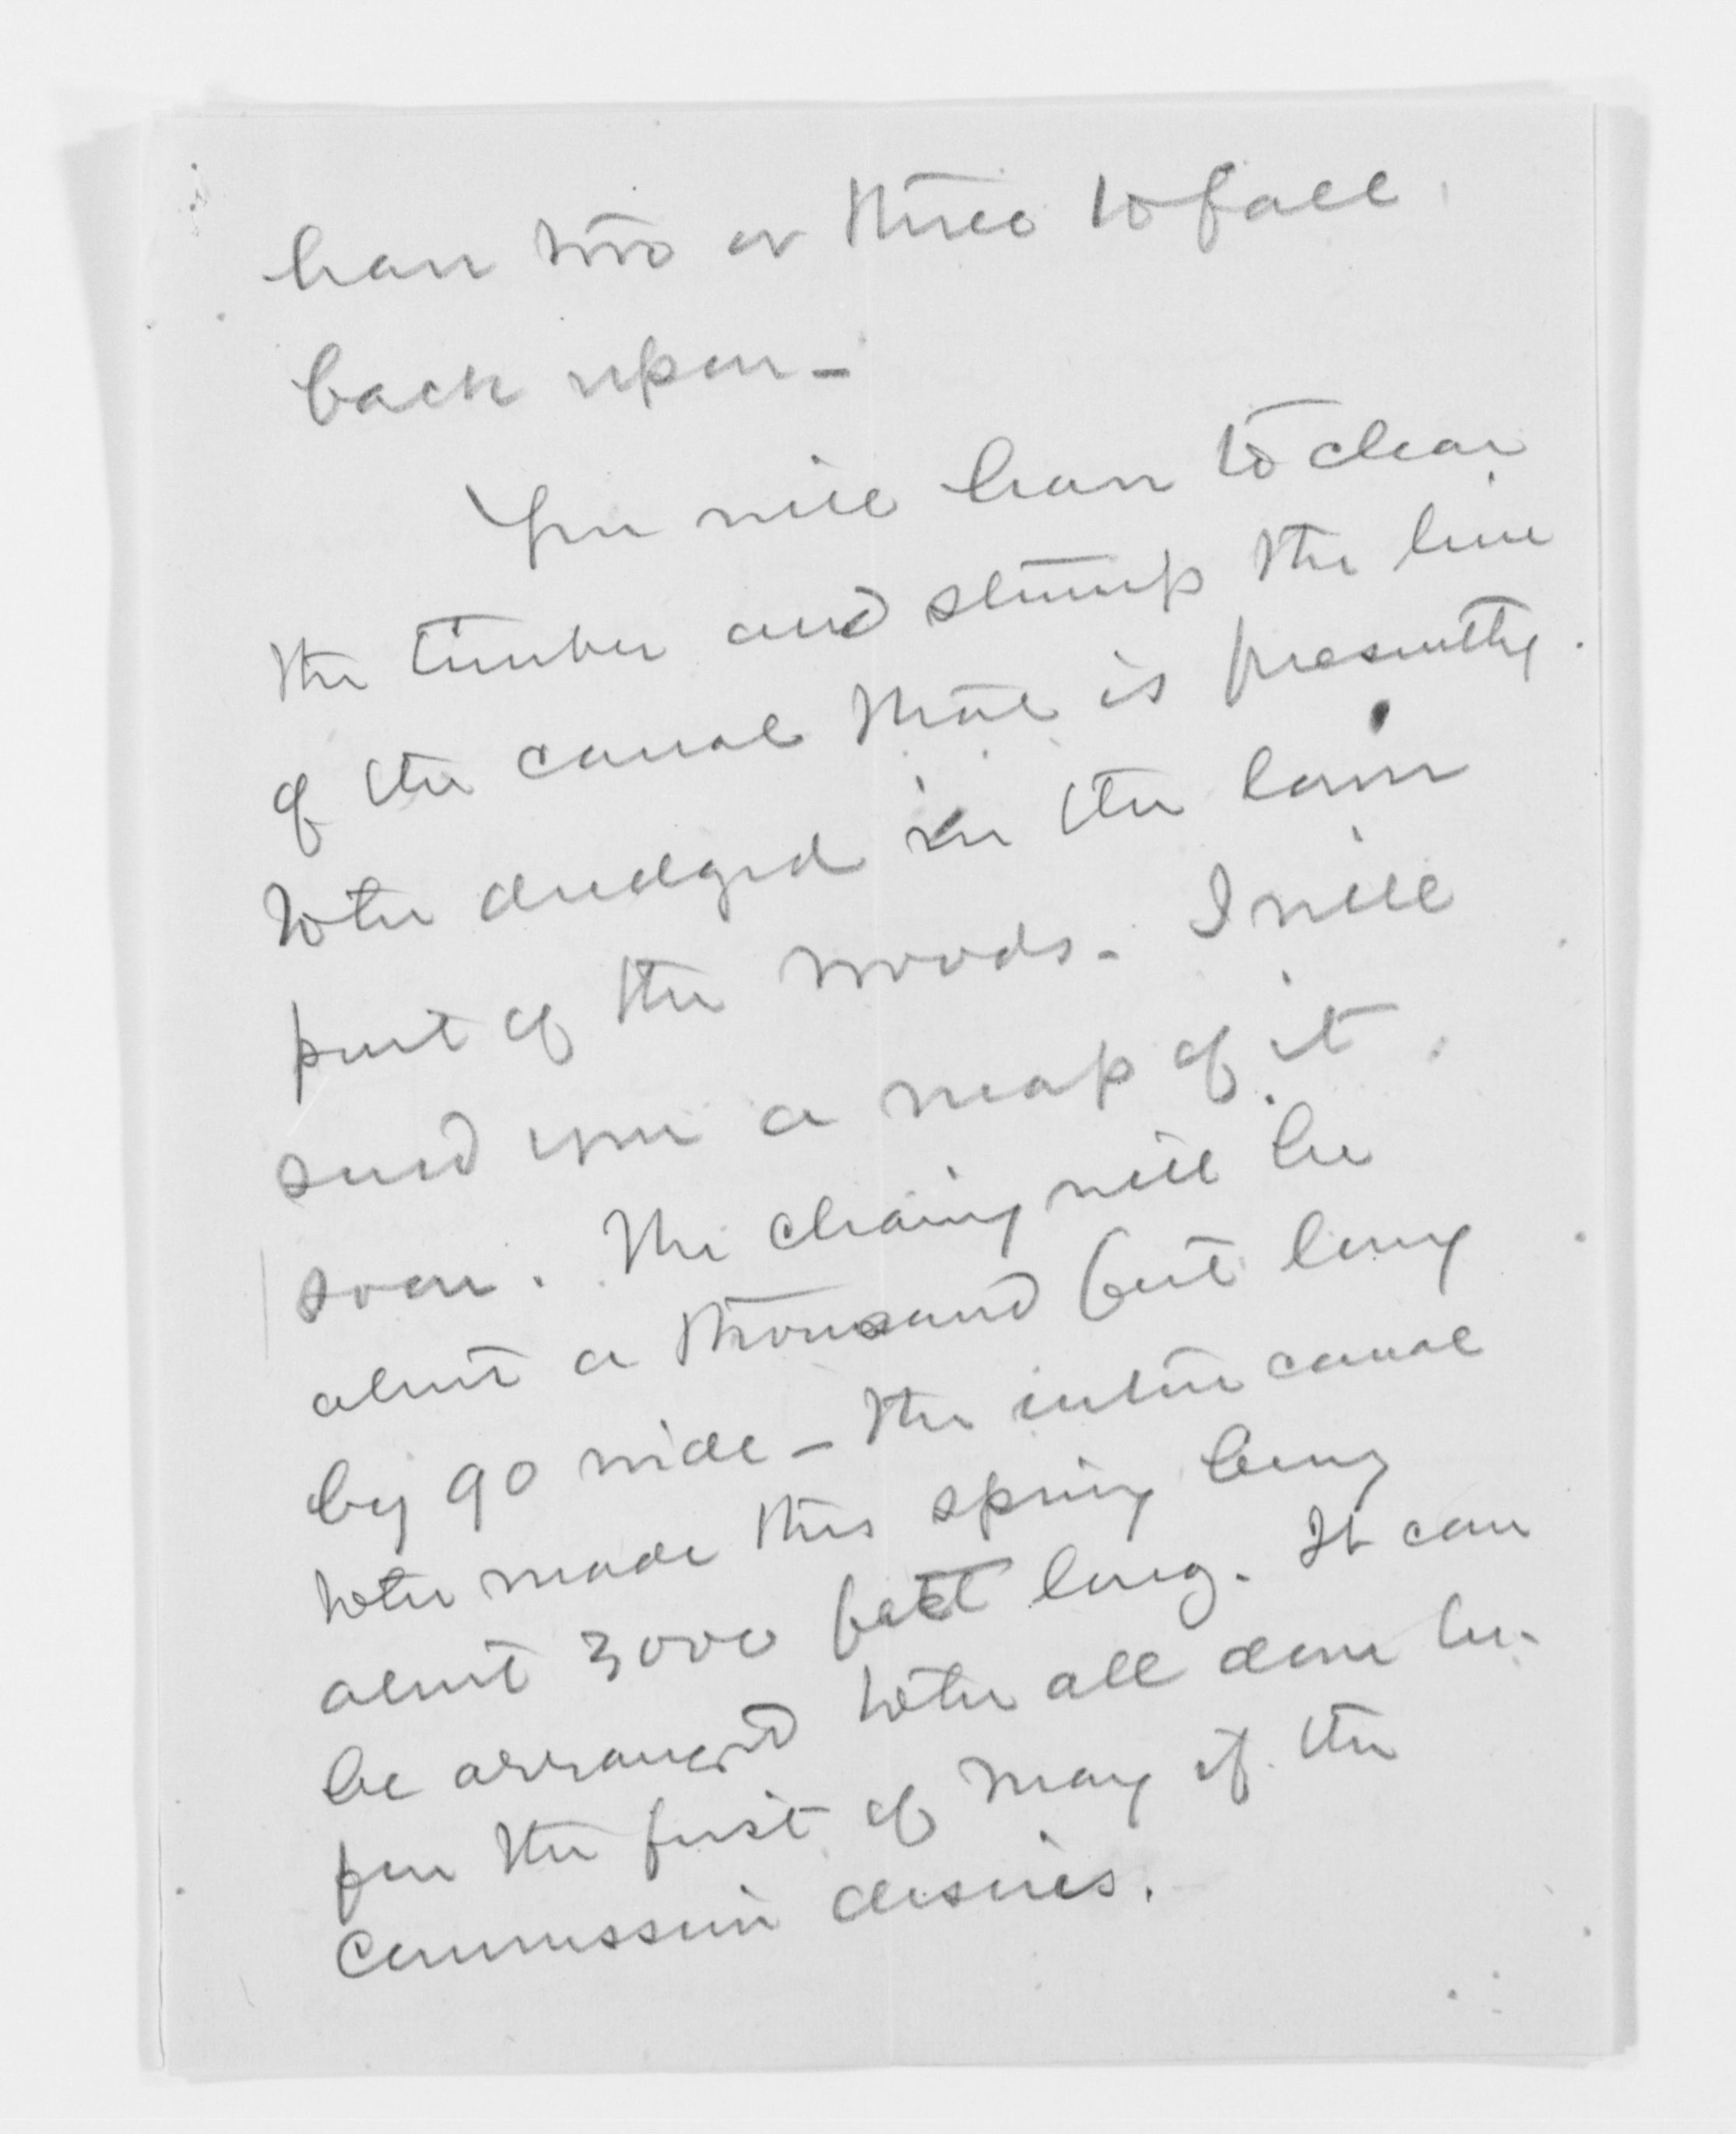 have two or three to fall
back upon -
You will have to clear
the timber and stump the line
of the canal that is presently
to be dredged in the lower
part of the woods. I will
send you a map of it
soon. The clearing will be
about a thousand feet long
by 90 wide - the entire canal
to be made this spring being
about 3000 feet long. It can
be arranged to be all done be-
fore the first of May if the
Commission desires.